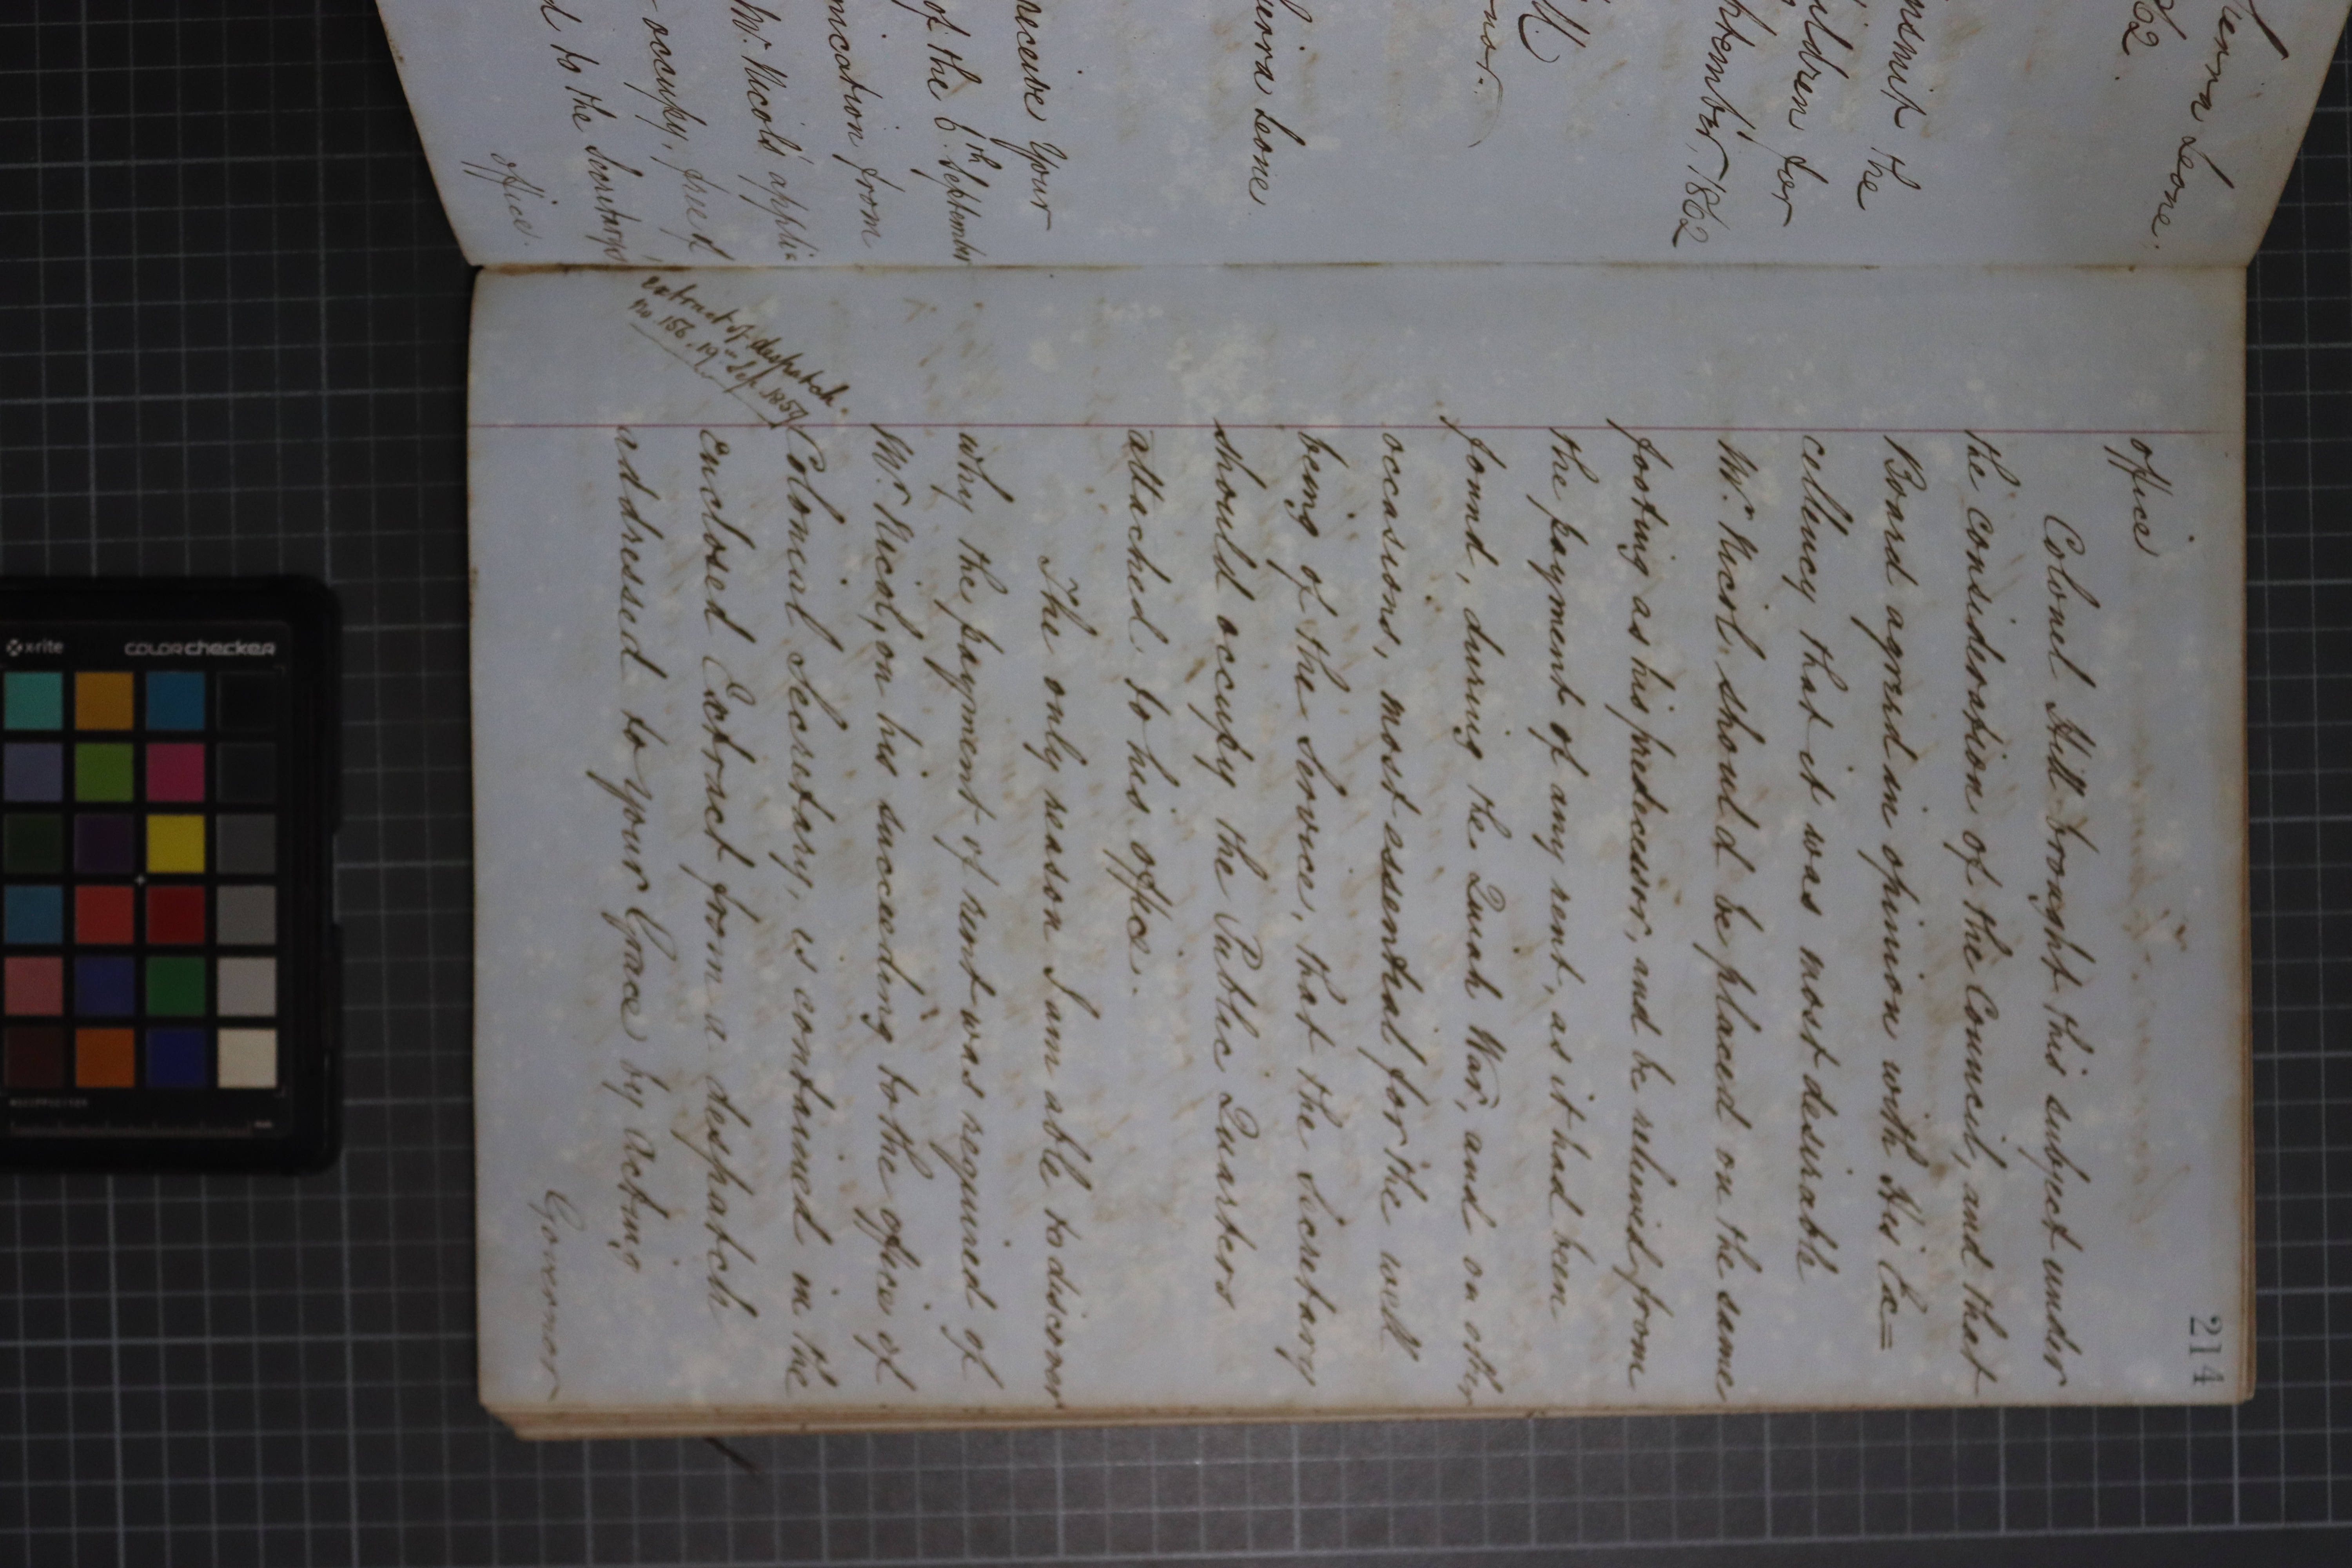 ierra Leone.
62.
nsmit the
ildren for
ptember, 1862
ll)
nor.
ierra Leone
receive Your
of the 6th September
unication from
Mr. Nicol's appli=
occupy, free of
d to the Secretary's
office.
214
office
Colonel Hill brought this subject under
the consideration of the Council, and that
Board agreed in opinion with His Ex=
cellency that it was most desirable
Mr. Nicol should be placed on the same
footing as his predecessor, and be relieved from
the payment of any rent, as it had been
found, during the Quiah War, and on other
occasions, most essential for the well
being of the Service, that the Secretary
should occupy the Public Quarters
attached to his office.
The only reason I am able to discover
why the payment of rent was required of
Mr. Nicol, on his succeeding to the office of
Colonial Secretary, is contained in the
extract of despatch
no. 156. 19th Sep. 1859
enclosed Extract from a despatch
addressed to your Grace by Acting
Governor
x-rite
colorchecker